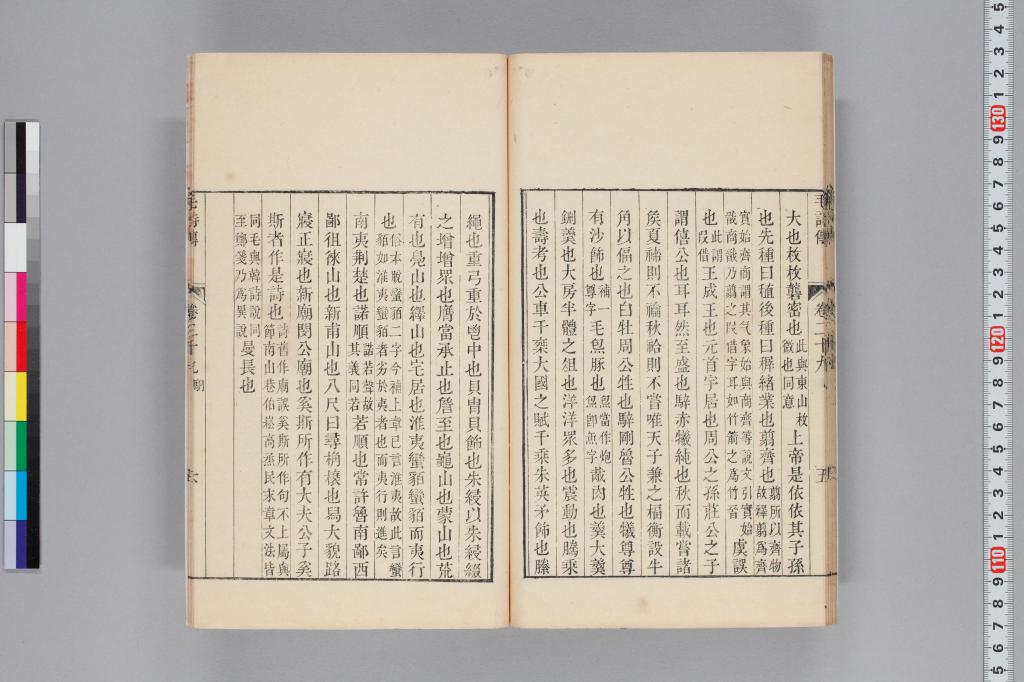 毛詩傳 卷二十九 五
大也枚枚礱密也此與東山枚敛也同意上帝是依依其子孫
也先種曰稙後種曰穉緒業也翦齊也翦所以齊物故釋翦為齊
實始齊商謂其气象始與商齊等說文引實始戩商戩乃翦之叚借字耳如竹箭之為竹晉虞誤
也此謂叚借王成王也元首宇居也周公之孫莊公之子
謂僖公也耳耳然至盛也騂赤犧純也秋而載嘗諸
矦夏禘則不禴秋祫則不嘗唯天子兼之楅衡設牛
角以偪之也白牡周公牲也騂剛魯公牲也犧尊尊
有沙飾也補一尊字毛炰豚也炰當作炮炰卽𤈪字胾肉也羹大羹
鉶羹也大房半體之俎也洋洋眾多也震動也騰乘
也壽考也公車千乘大國之賦千乘朱英矛飾也縢
繩也重弓重於鬯中也貝胄貝飾也朱綅以朱綅綴
之增增眾也膺當承止也詹至也龜山也蒙山也荒
有也鳧山也繹山也宅居也淮夷蠻貊蠻貊而夷行
也俗本脫蠻貊二字今補上章已言淮夷故此言蠻貊如淮夷蠻貊者劣於夷者也而夷行則進矣
南夷荆楚也諾順也諾若聲故其義同若若順也常許魯南鄙西
鄙徂徠山也新甫山也八尺曰尋桷榱也舄大貌路
寢正寢也新廟閔公廟也奚斯所作有大夫公子奚
斯者作是詩也詩舊作廟誤奚斯所作句不上屬與節南山巷伯崧高烝民末章文法皆
同毛與韓詩說同至鄭箋乃為異說曼長也
毛詩傳 卷二十九 六